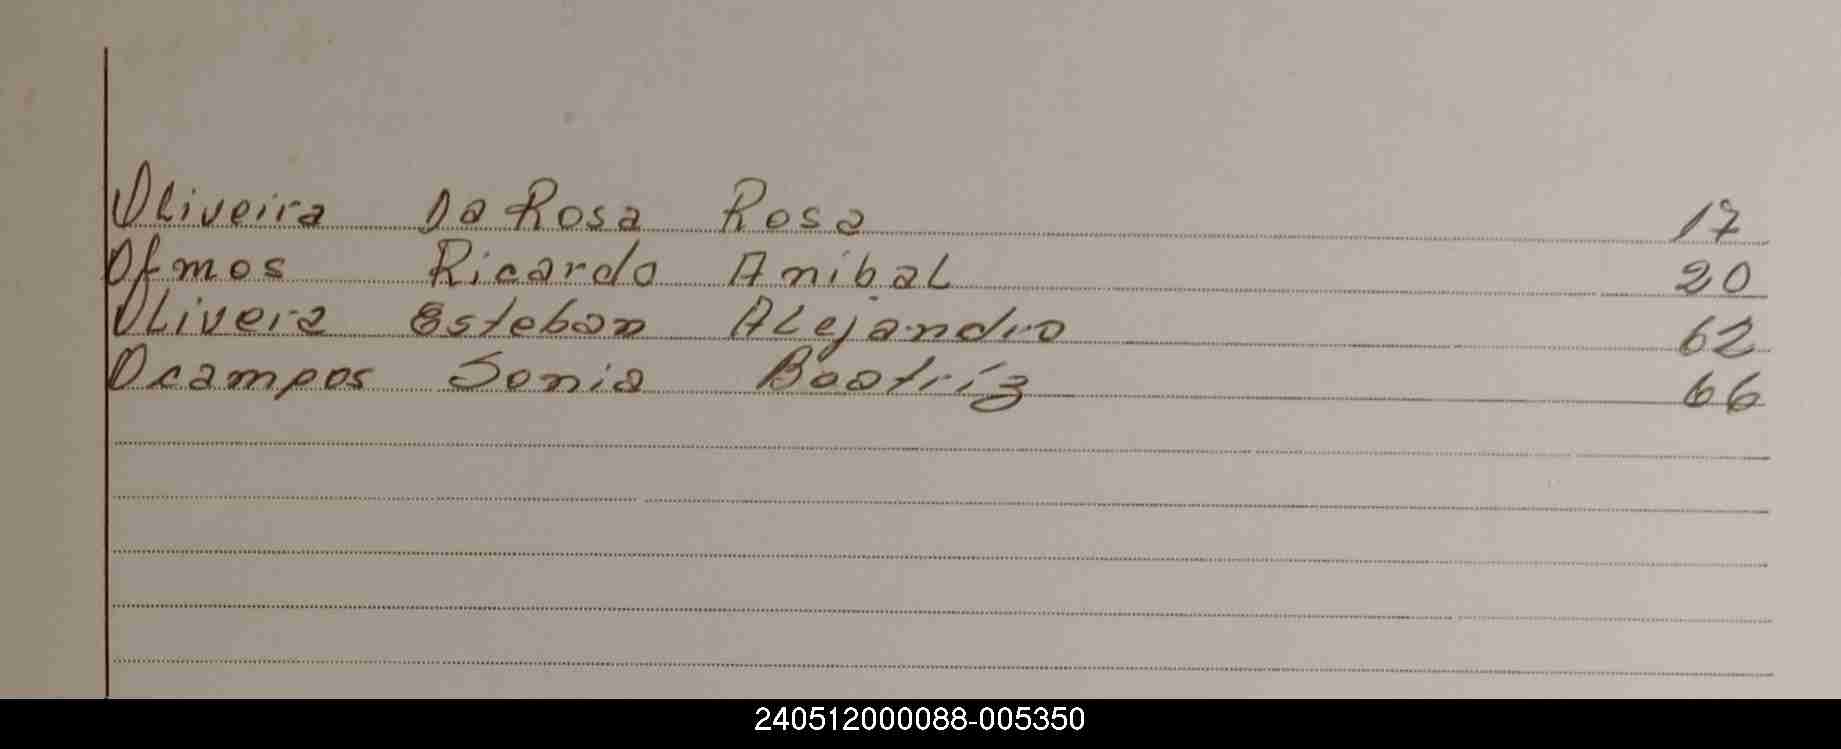 Oliveira Da Rosa Rosa 17
Olmos Ricardo Anibal 20
Olivera Esteban Alejandro 62
Ocampos Sonia Beatríz 66
240512000088-005350